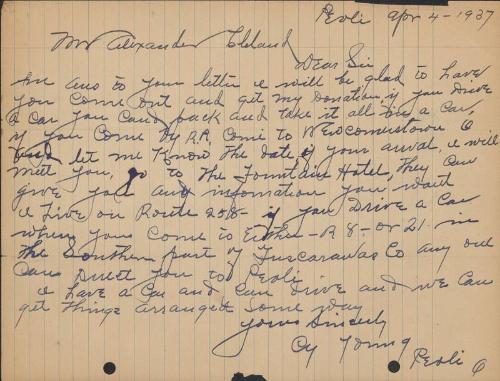 Peoli Apr 4-1937
Mr Alexander Cleland
Dear Sir
In ans to your letter I will be glad to have
you come out and get my Donation if you Drive
a car you can pack and take it all in a car
if you come by R.R. come to Newcomerstown O
and let me know the date of your arival, I will
meet you, go to the Fountain Hotel, they can
give you any infomation you want
I live on Route 258- if you Drive a car
when you come to Either - R 8- or 21- in
the Southern part of Tuscarawas Co any one
can direct you to Peoli
I have a car and can drive and we can
get things arranged some way
yours Sincerly
Cy Young
Peoli O